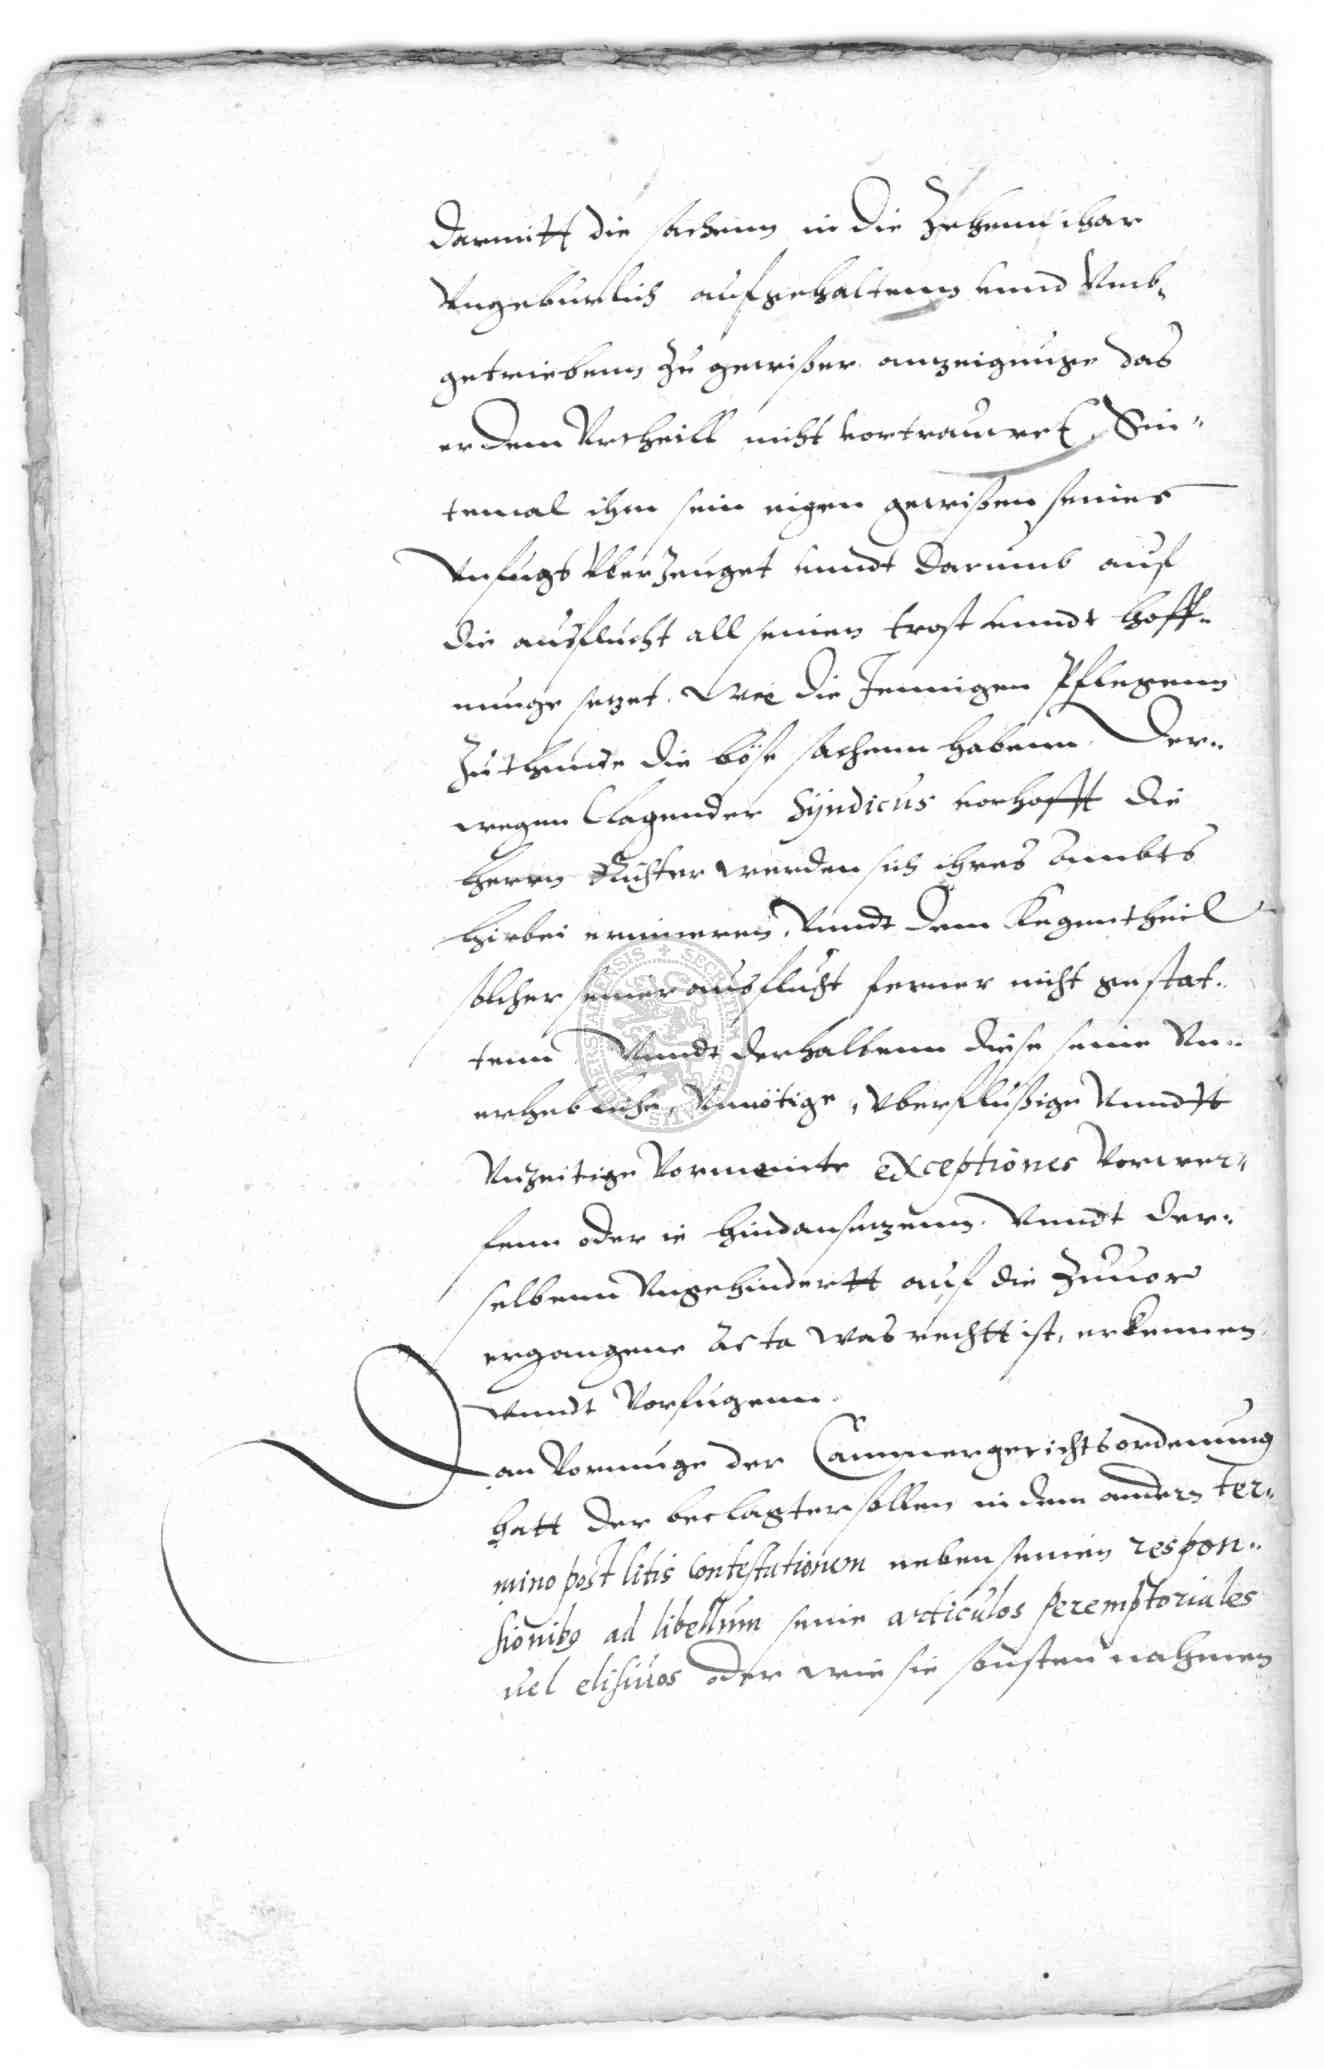 darmitt die sachenn in die Zehenn ihar
Vngeburlich aufgehaltenn vnnd Vmb-
getriebenn zu gewißer anzeigunge das
er dem Vrtheill nicht vortrauwet, Sin-
temal ihm sein eigen gewißen seines
Vnfugs vberzeuget vnndt darumb auf
die ausflucht all seinen trost vnndt hoff-
nunge setzet. Wie die Jennigen Pflegenn
Zuthunde die böse sachenn habenn. Der-
wegen Clagender Syndicus vorhofft die
Herrn Richter werden sich ihres Ambts
hirbei erinneren, Vnndt dem Kegentheil
solcher seiner ausflucht ferner nicht gestat-
tenn Vnndt derhalbenn diese seine Vn-
erhebliche, Vnnötige, vberflußige Vnndt
Vnzeitige Vormeinte exceptiones Vorwer-
fenn oder ie hindansetzenn. Vnndt der-
selbenn Vngehindertt auf die Zuuor
ergangene Acta was rechtt ist, erkennen
vnndt Vorfugenn.
Dan Vormuge der Cammergerichtsordenung
hatt der beclagter sollen in dem andern ter-
mino post litis Contestationem neben seinen respon-
sionibus ad libellum seine articulos peremptoriales
vel elisiuos oder wie sie sonsten nahmen
SECRETUM CIVITATIS